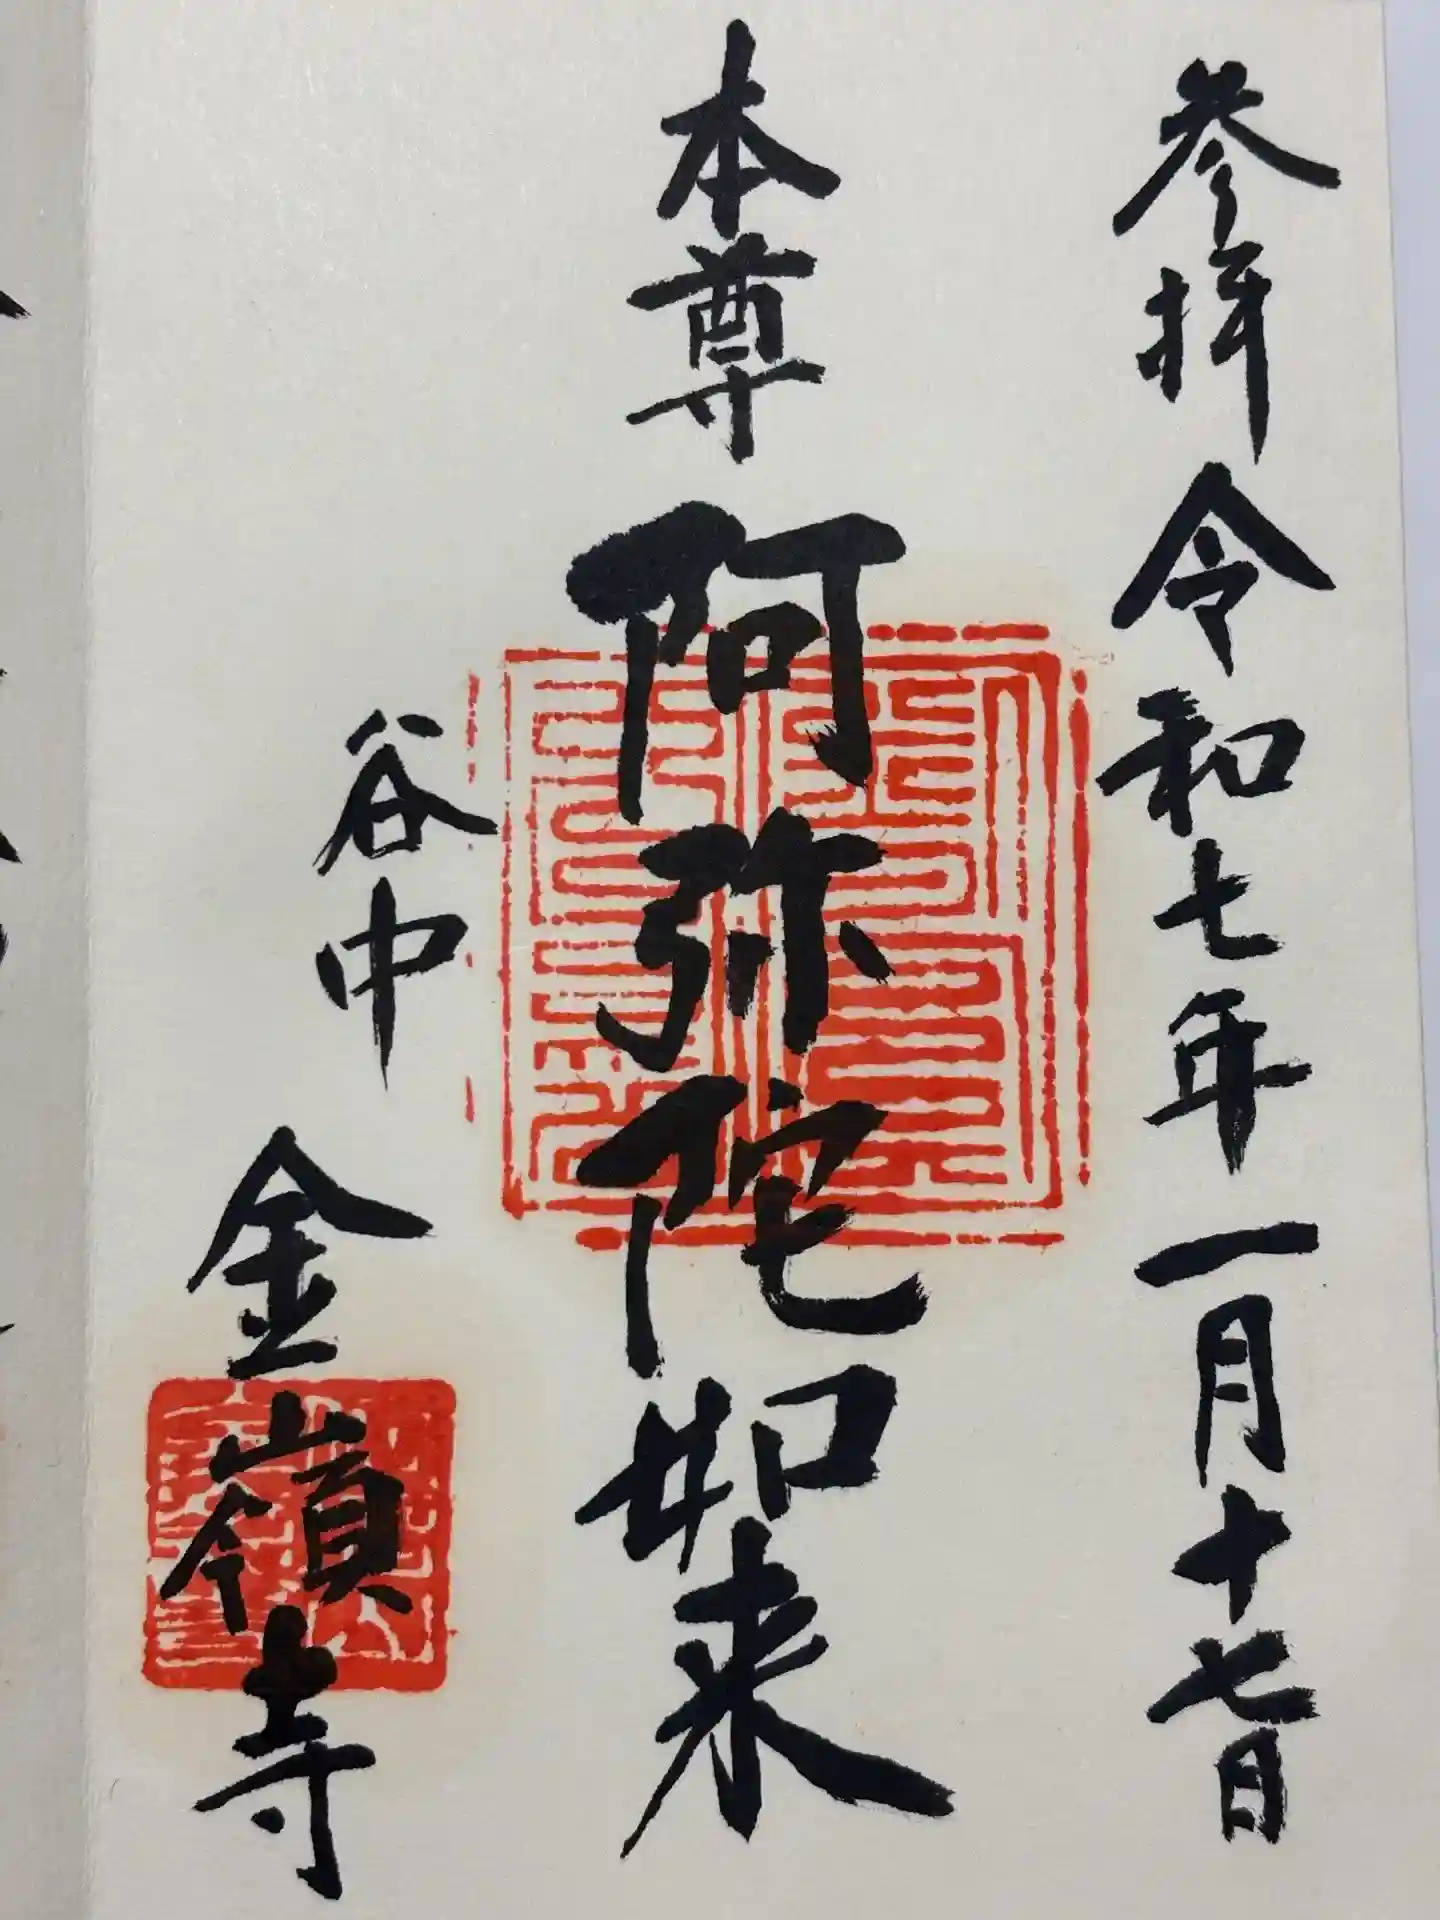 参拝 令和七年 一月十七日
本尊 阿弥陀如来
谷中
金嶺寺